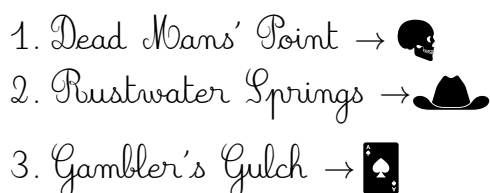 1. Dead Mans' Point →
2. Rustwater Springs →
3. Gambler's Gulch → A A